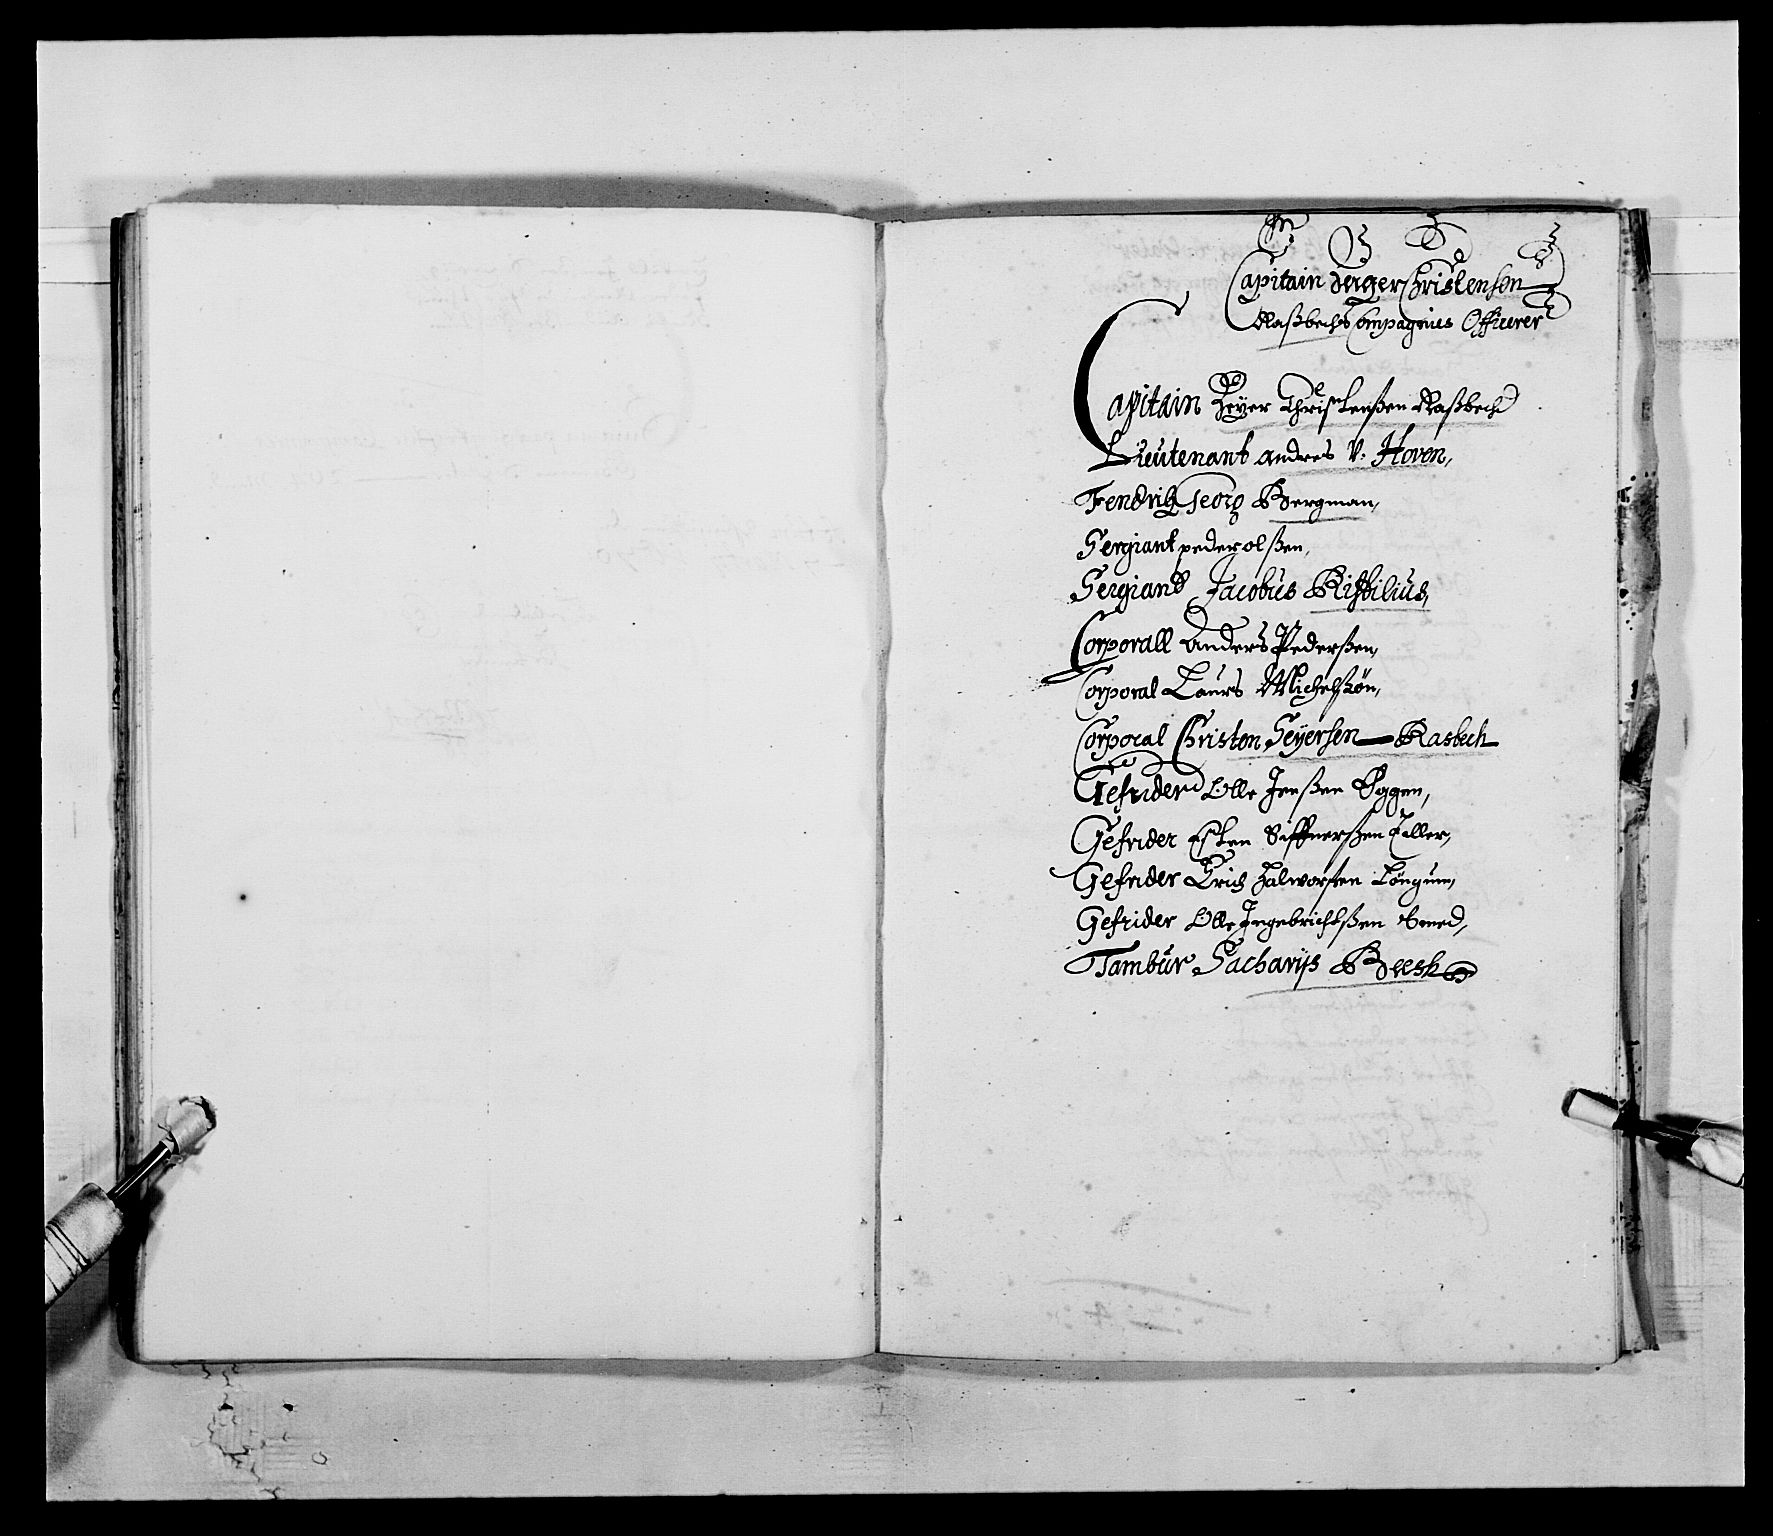 Capitain Seyer Christensen
Rasbechs Compagnies Officerer
Capitain Seyer Christenßen Raßbech
Lieutenant Andres V. Hoven,
Fendrich Georg Bergman,
Sergiant peder olßen,
Sergiant Jacobus Kistilius,
Corporall Anders Pederßen,
Corporal Laurs Michelßøn,
Corporal Christen Seyersen Rasbech
Gefrider Olle Jenßen Øggen,
Gefrider Esten Tiller,
Gefrider Erich Halworsen Løngum,
Gefrider Olle Ingebrichtßen Smed,
Tambur Sacharijs Beesk